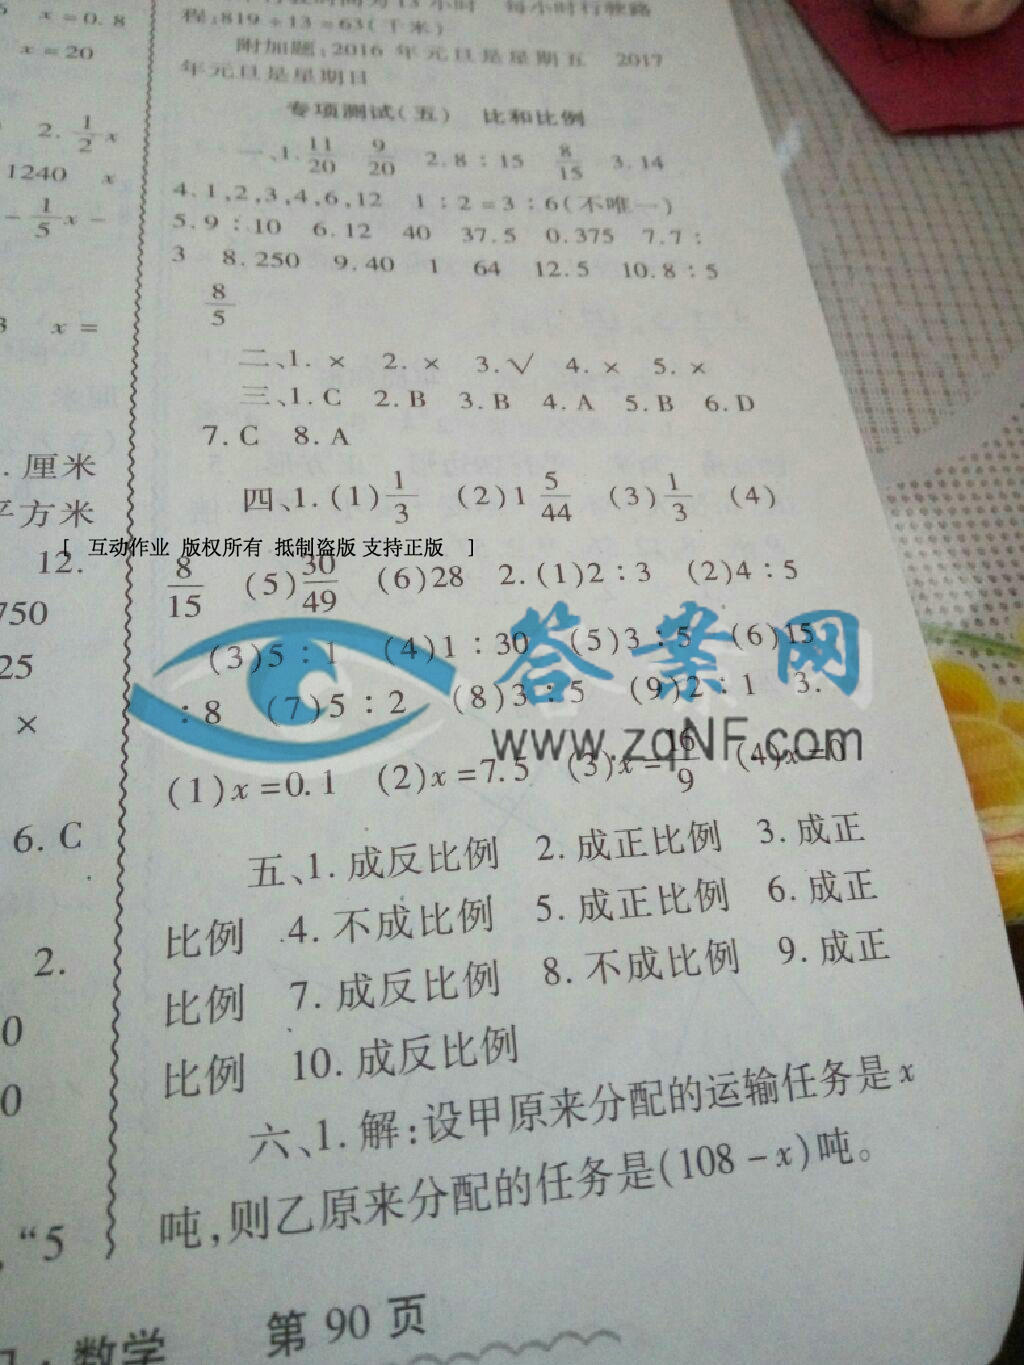 x=0.8
x=20
2. 1/2 x
1240 x
- 1/5 x -
x =
厘米
平方米
12.
750
25
×
6. C
2.
0
0
“5
程:819÷13=63(千米)
附加题:2016 年元旦是星期五 2017
年元旦是星期日
专项测试(五) 比和比例
一、1. 11/20 9/20 2. 8∶15 8/15 3. 14
4. 1,2,3,4,6,12 1∶2=3∶6(不唯一)
5. 9∶10 6. 12 40 37.5 0.375 7. 7∶
3 8. 250 9. 40 1 64 12.5 10. 8∶5
8/5
二、1. × 2. × 3. √ 4. × 5. ×
三、1. C 2. B 3. B 4. A 5. B 6. D
7. C 8. A
四、1. (1) 1/3 (2) 1 5/44 (3) 1/3 (4)
[ 互动作业 版权所有 抵制盗版 支持正版 ]
8/15 (5) 30/49 (6) 28 2. (1) 2∶3 (2) 4∶5
(3) 5∶1 (4) 1∶30 (5) 3∶5 (6) 15
∶8 (7) 5∶2 (8) 3∶5 (9) 2∶1 3.
答业网
www.zqNF.com
(1) x=0.1 (2) x=7.5 (3) x=16/9 (4) x=0
五、1. 成反比例 2. 成正比例 3. 成正
比例 4. 不成比例 5. 成正比例 6. 成正
比例 7. 成反比例 8. 不成比例 9. 成正
比例 10. 成反比例
六、1. 解:设甲原来分配的运输任务是 x
吨,则乙原来分配的任务是(108-x)吨。
·数学 第 90 页